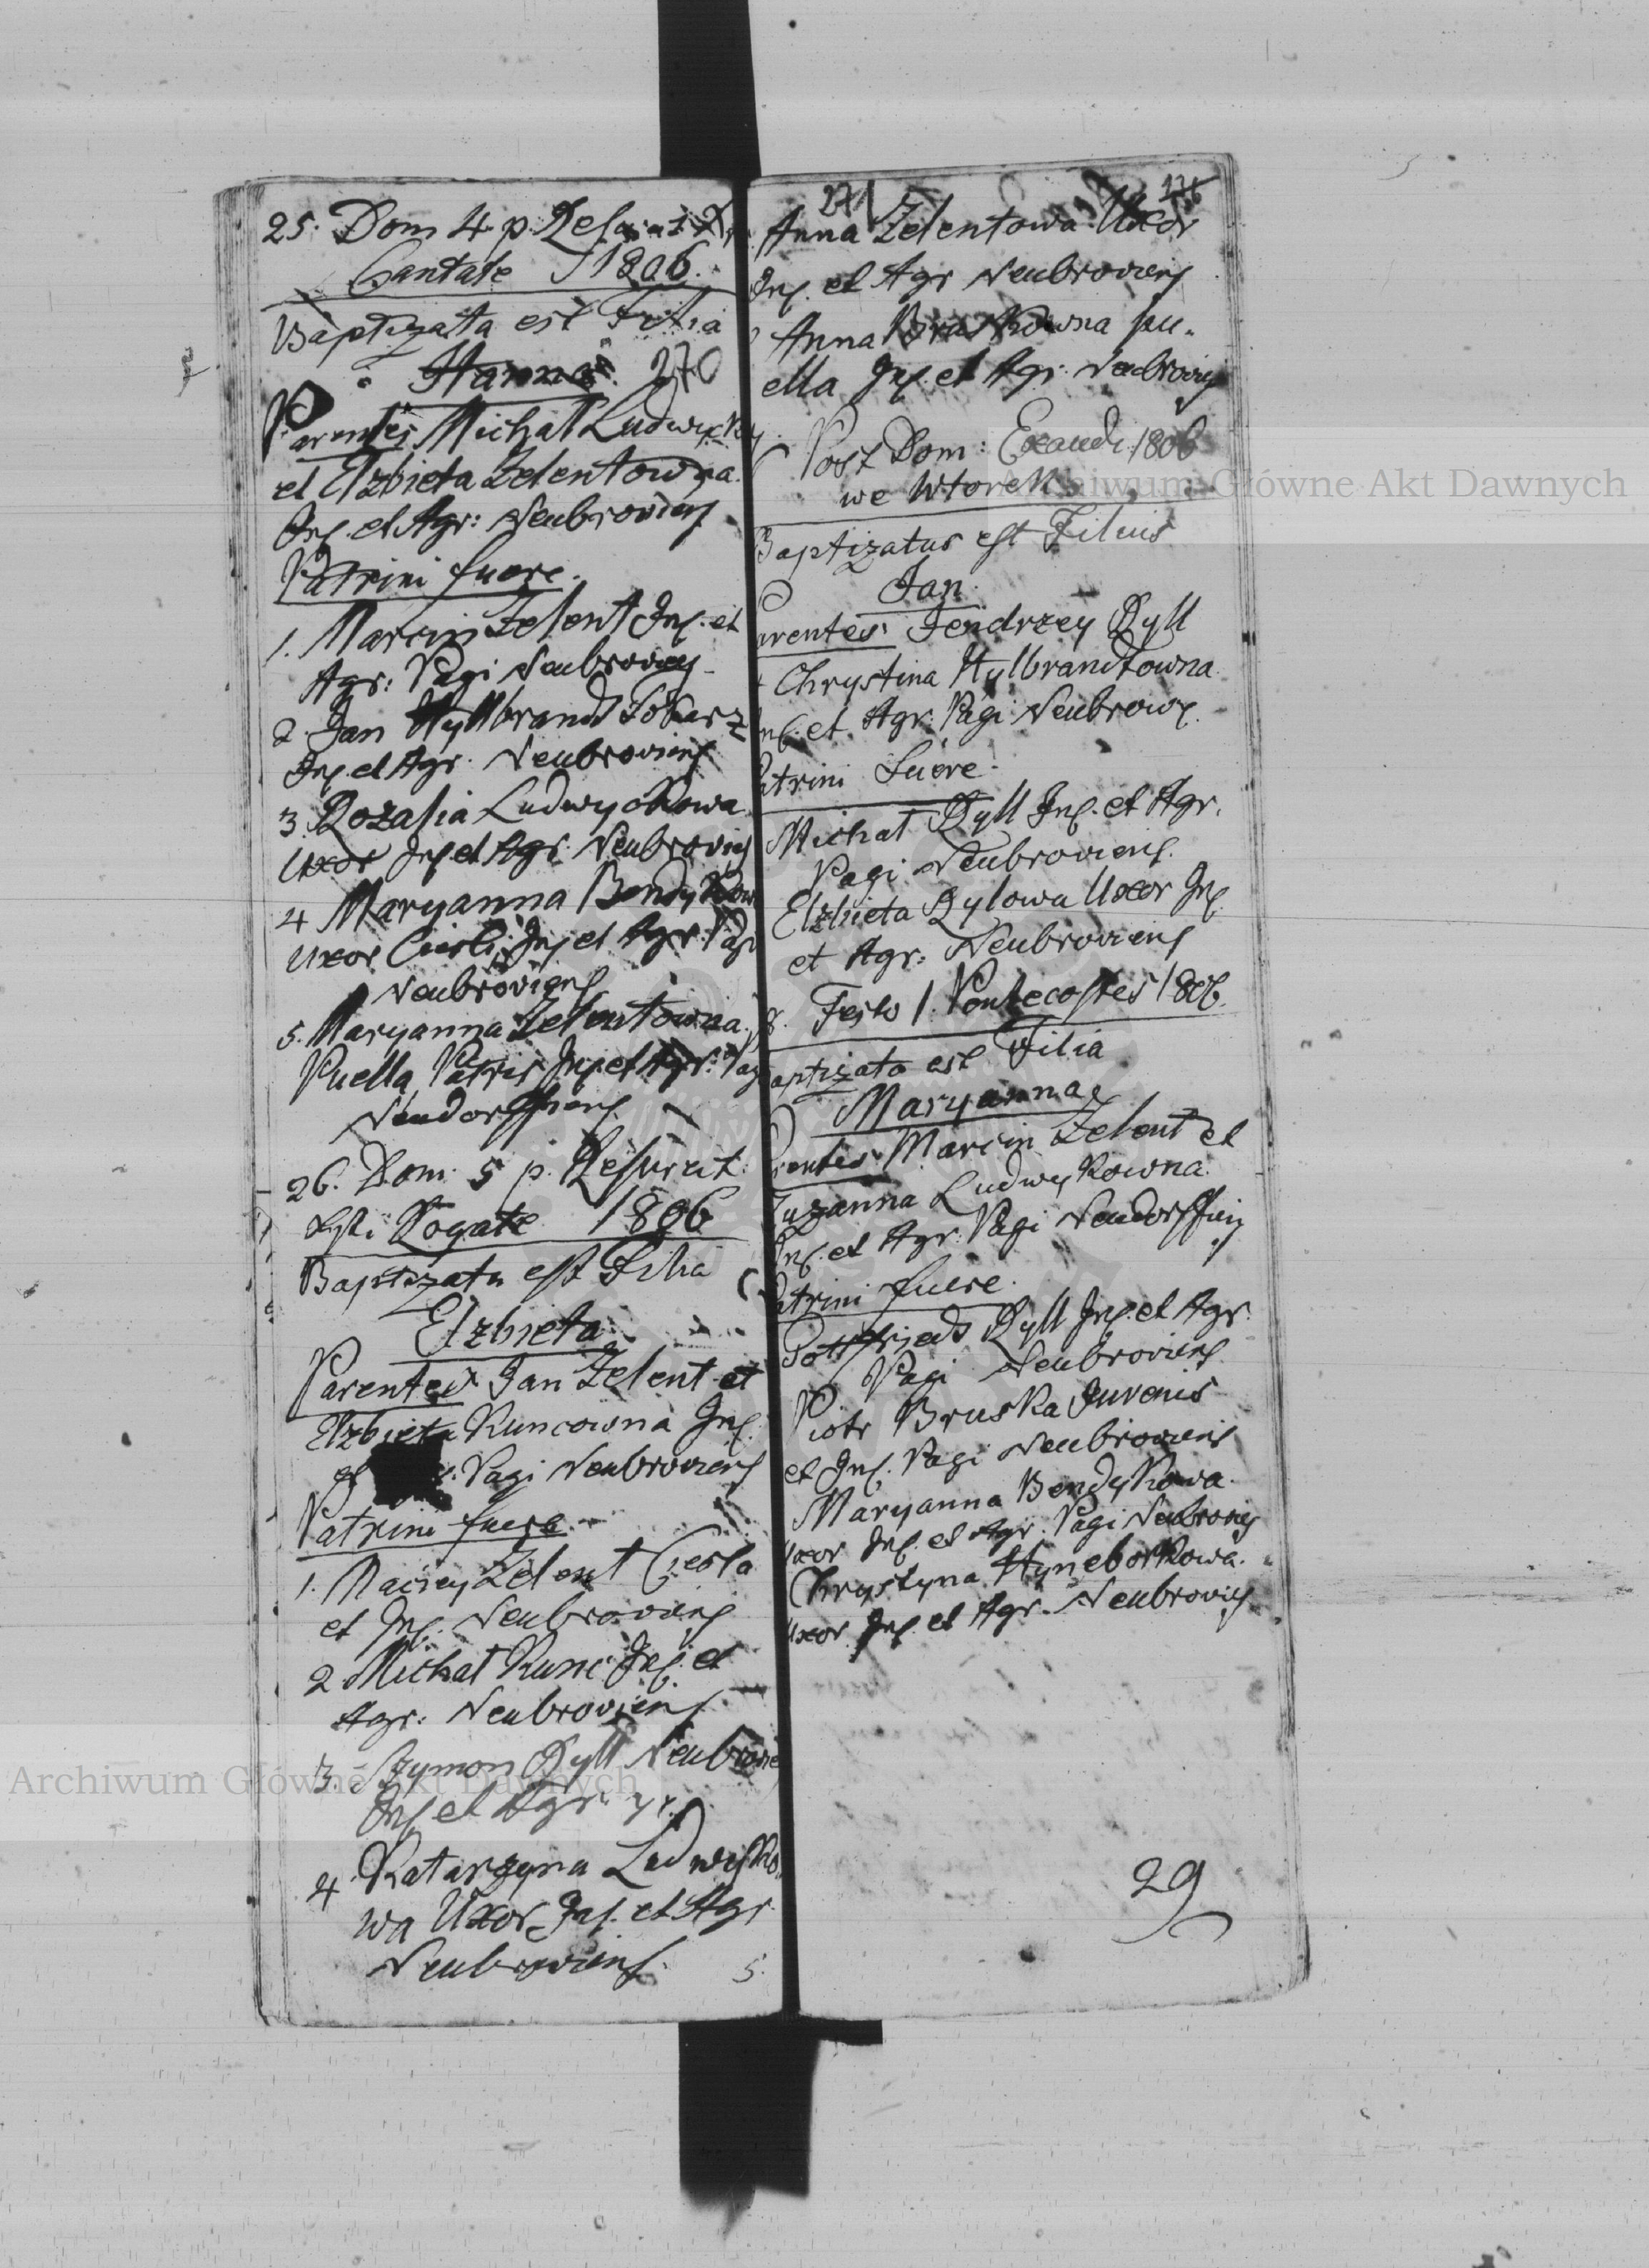 25. Dom 4. p. Resurrect. X
Cantate 1806.
Baptizata est Filia
Hanna. 270
Parentes Michał Ludwyk
et Elzbieta Zelentowna
Inq. et Agr: Neubroviens
Patrini fuere.
1. Marcin Zelent Inq. et
Agr: Pagi Neubroviens
2 Jan Hyllbrand Tokarz
Inq. et Agr. Neubroviens
3 Rozalia Ludwyckowa
Uxor Inq. et Agr. Neubroviens
4 Maryanna Bendykow
Uxor Cieśli Inq et Agr. Pagi
Neubroviens
5. Maryanna Zelentowna
Puella Patris Inq. et Agr. Pag
Neudorffiens
26. Dom. 5 p. Resurect.
Xsti Rogate 1806
Baptizata est Filia
Elzbieta
Parentes Jan Zelent et
Elzbieta Kuncowna Inq.
et Pagi Neubroviens
Patrini fuere
1. Maciey Zelent Cieśla
et Inq. Neubroviens
2 Michał Kunc Inq. et
Agr: Neubroviens
3. Szymon Ryll Neubrovie
Inq et Agr.
4. Katarzyna Ludwyko
wa Uxor Inq. et Agr
Neubroviens.
5.
271 176
Anna Zelentowa Uxor
Inq. et Agr Neubroviens
Anna Bruskowna pu-
ella Inq. et Agr. Neubroviens
Post Dom: Exaudi 1806
we Wtorek
Baptizatus est Filius
Jan.
Parentes Jendrzey Ryll
Chrystina Hylbrandtowna
Inq. et Agr. Pagi Neubrow.
Patrini fuere
Michał Ryll Inq. et Agr.
Pagi Neubroviens.
Elzbieta Rylowa Uxor Inq.
et Agr: Neubroviens
8. Festo 1. Pentecostes 1806.
Baptizata est Filia
Maryanna
Parentes Marcin Zelent et
Zuzanna Ludwykowna
Inq. et Agr. Pagi Neudorffiens
Patrini fuere.
Gottfried Ryll Inq. et Agr.
Pagi Neubroviens
Piotr Bruska Juvenis
et Inq. Pagi Neubroviens
Maryanna Bendykowa
Uxor Inq. et Agr. Pagi Neubroviens
Chrystyna Hyneborkowa.
Uxor Inq. et Agr. Neubroviens
29
Archiwum Główne Akt Dawnych
Archiwum Główne Akt Dawnych